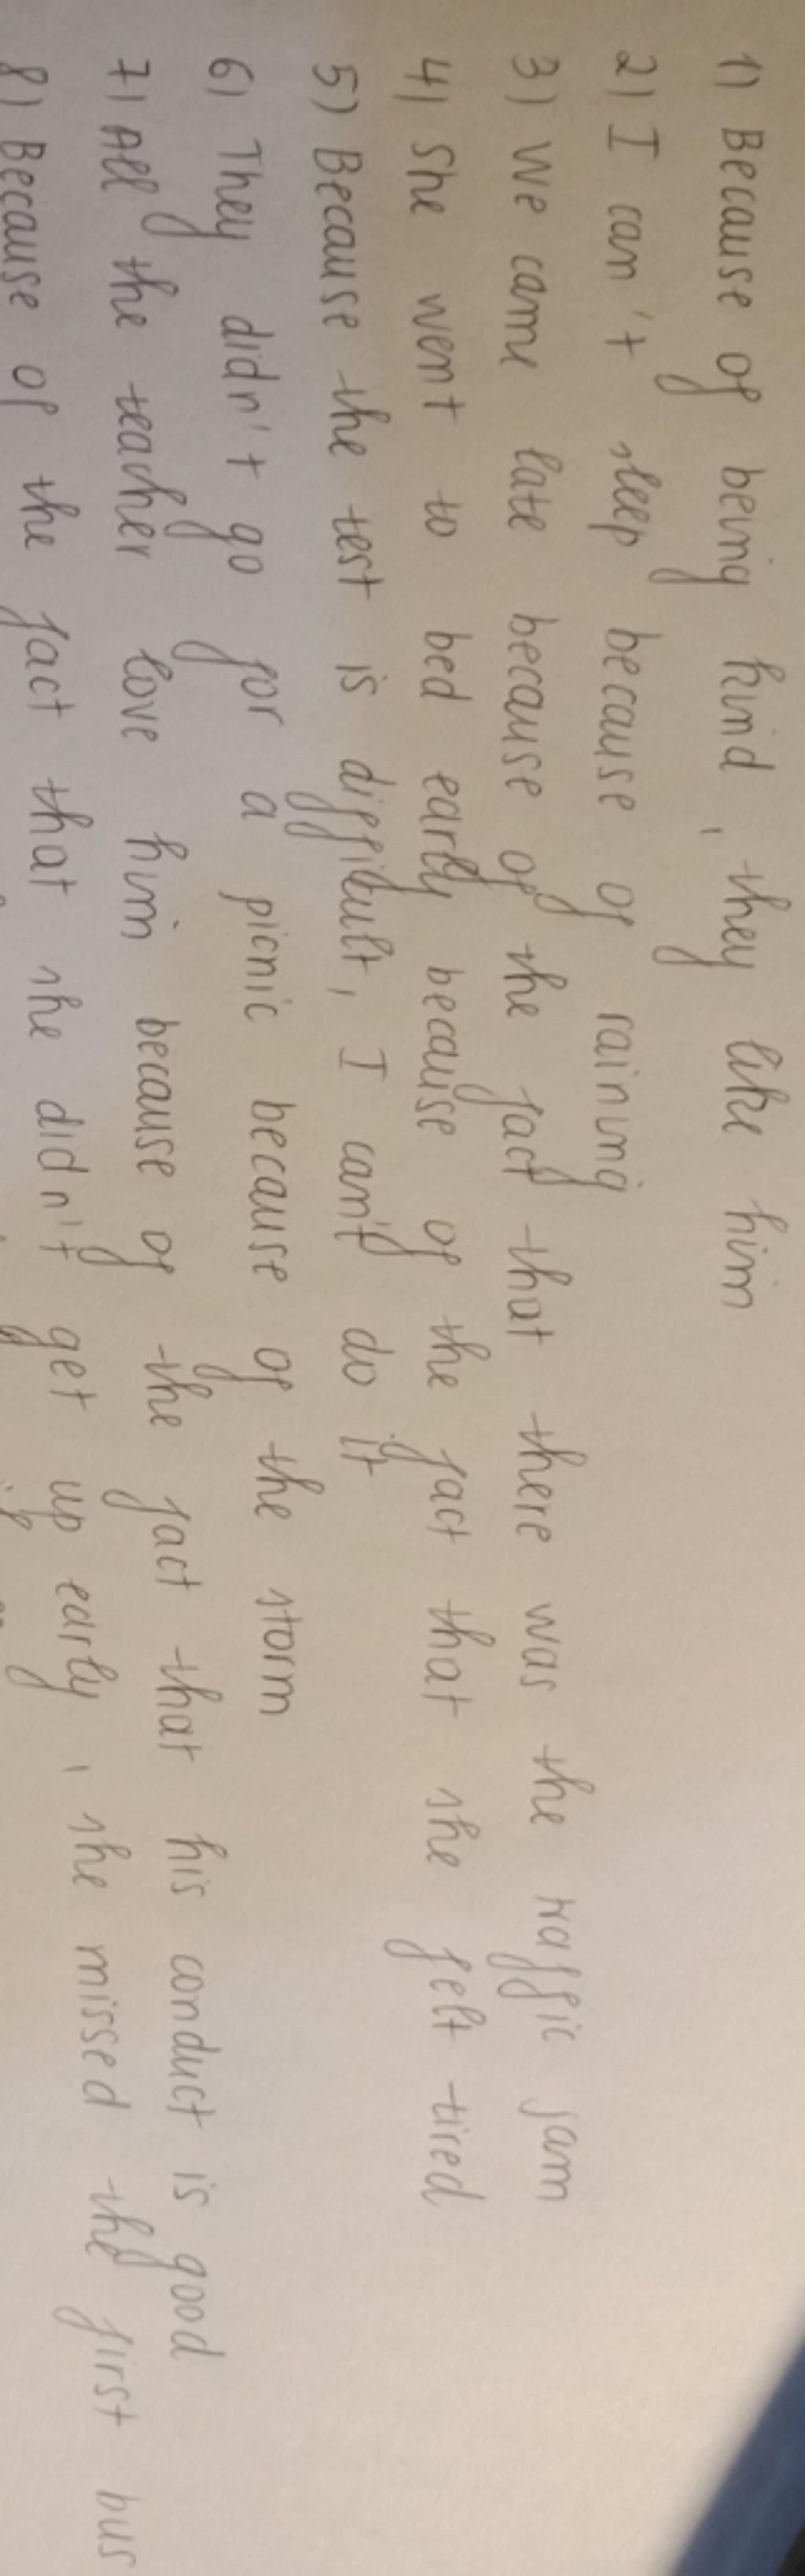 1) Because of being kind, they like him
2) I can't sleep because of raining
3) We came late because of the fact that there was the traffic jam
4) She went to bed early because of the fact that she felt tired
5) Because the test is difficult, I can't do it
6) They didn't go for a picnic because of the storm
7) All the teacher love him because of the fact that his conduct is good
8) Because of the fact that she didn't get up early, she missed the first bus